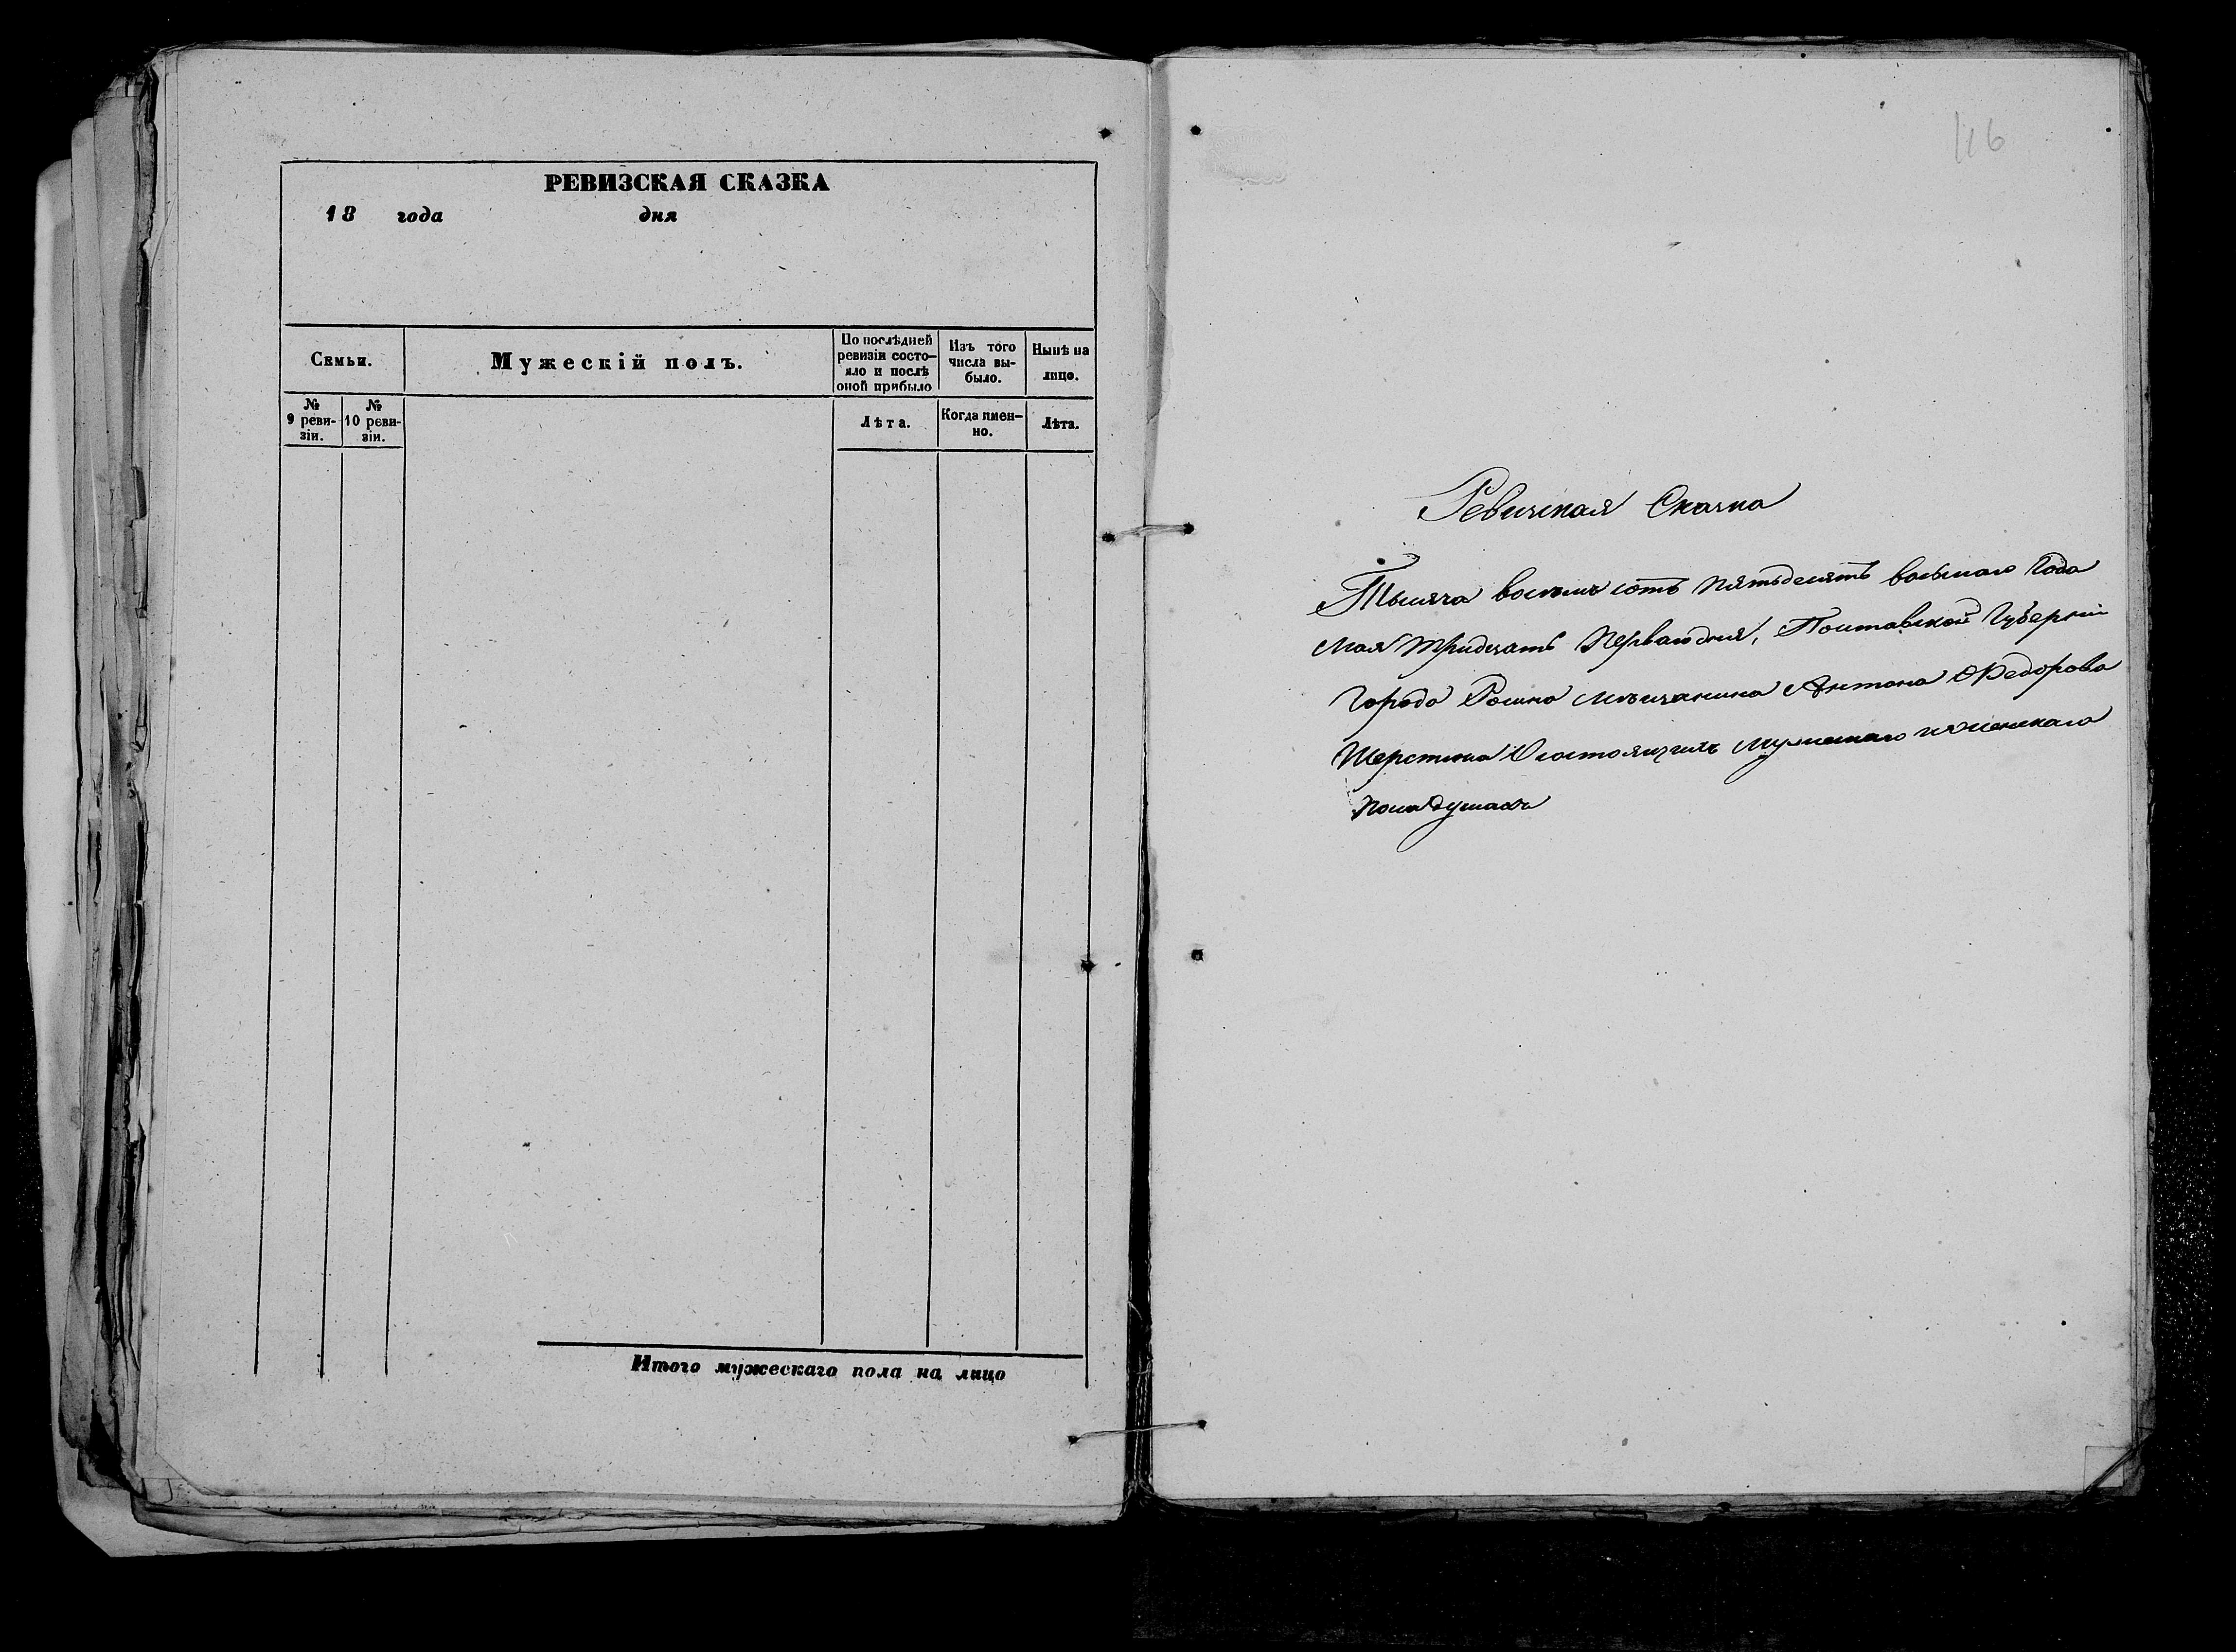 РЕВИЗСКАЯ СКАЗКА
18 года дня
Семьи.
Мужескій полъ.
По послѣдней
ревизіи состо-
яло и послѣ
оной прибыло
Изъ того
числа вы-
было.
Нынѣ на
лицо.
№
9 реви-
зіи.
№
10 реви-
зіи.
Лѣта.
Когда имен-
но.
Лѣта.
Итого мужескаго пола на лицо
116
Ревизская Сказка
Тысяча восемь сотъ пятьдесятъ восьмаго Года
Мая тридцать перваго дня, Полтавской Губерніи
Города Ромна мѣщанина Антона Федорова
Шерстюка О состоящихъ мужескаго и женскаго
пола душахъ